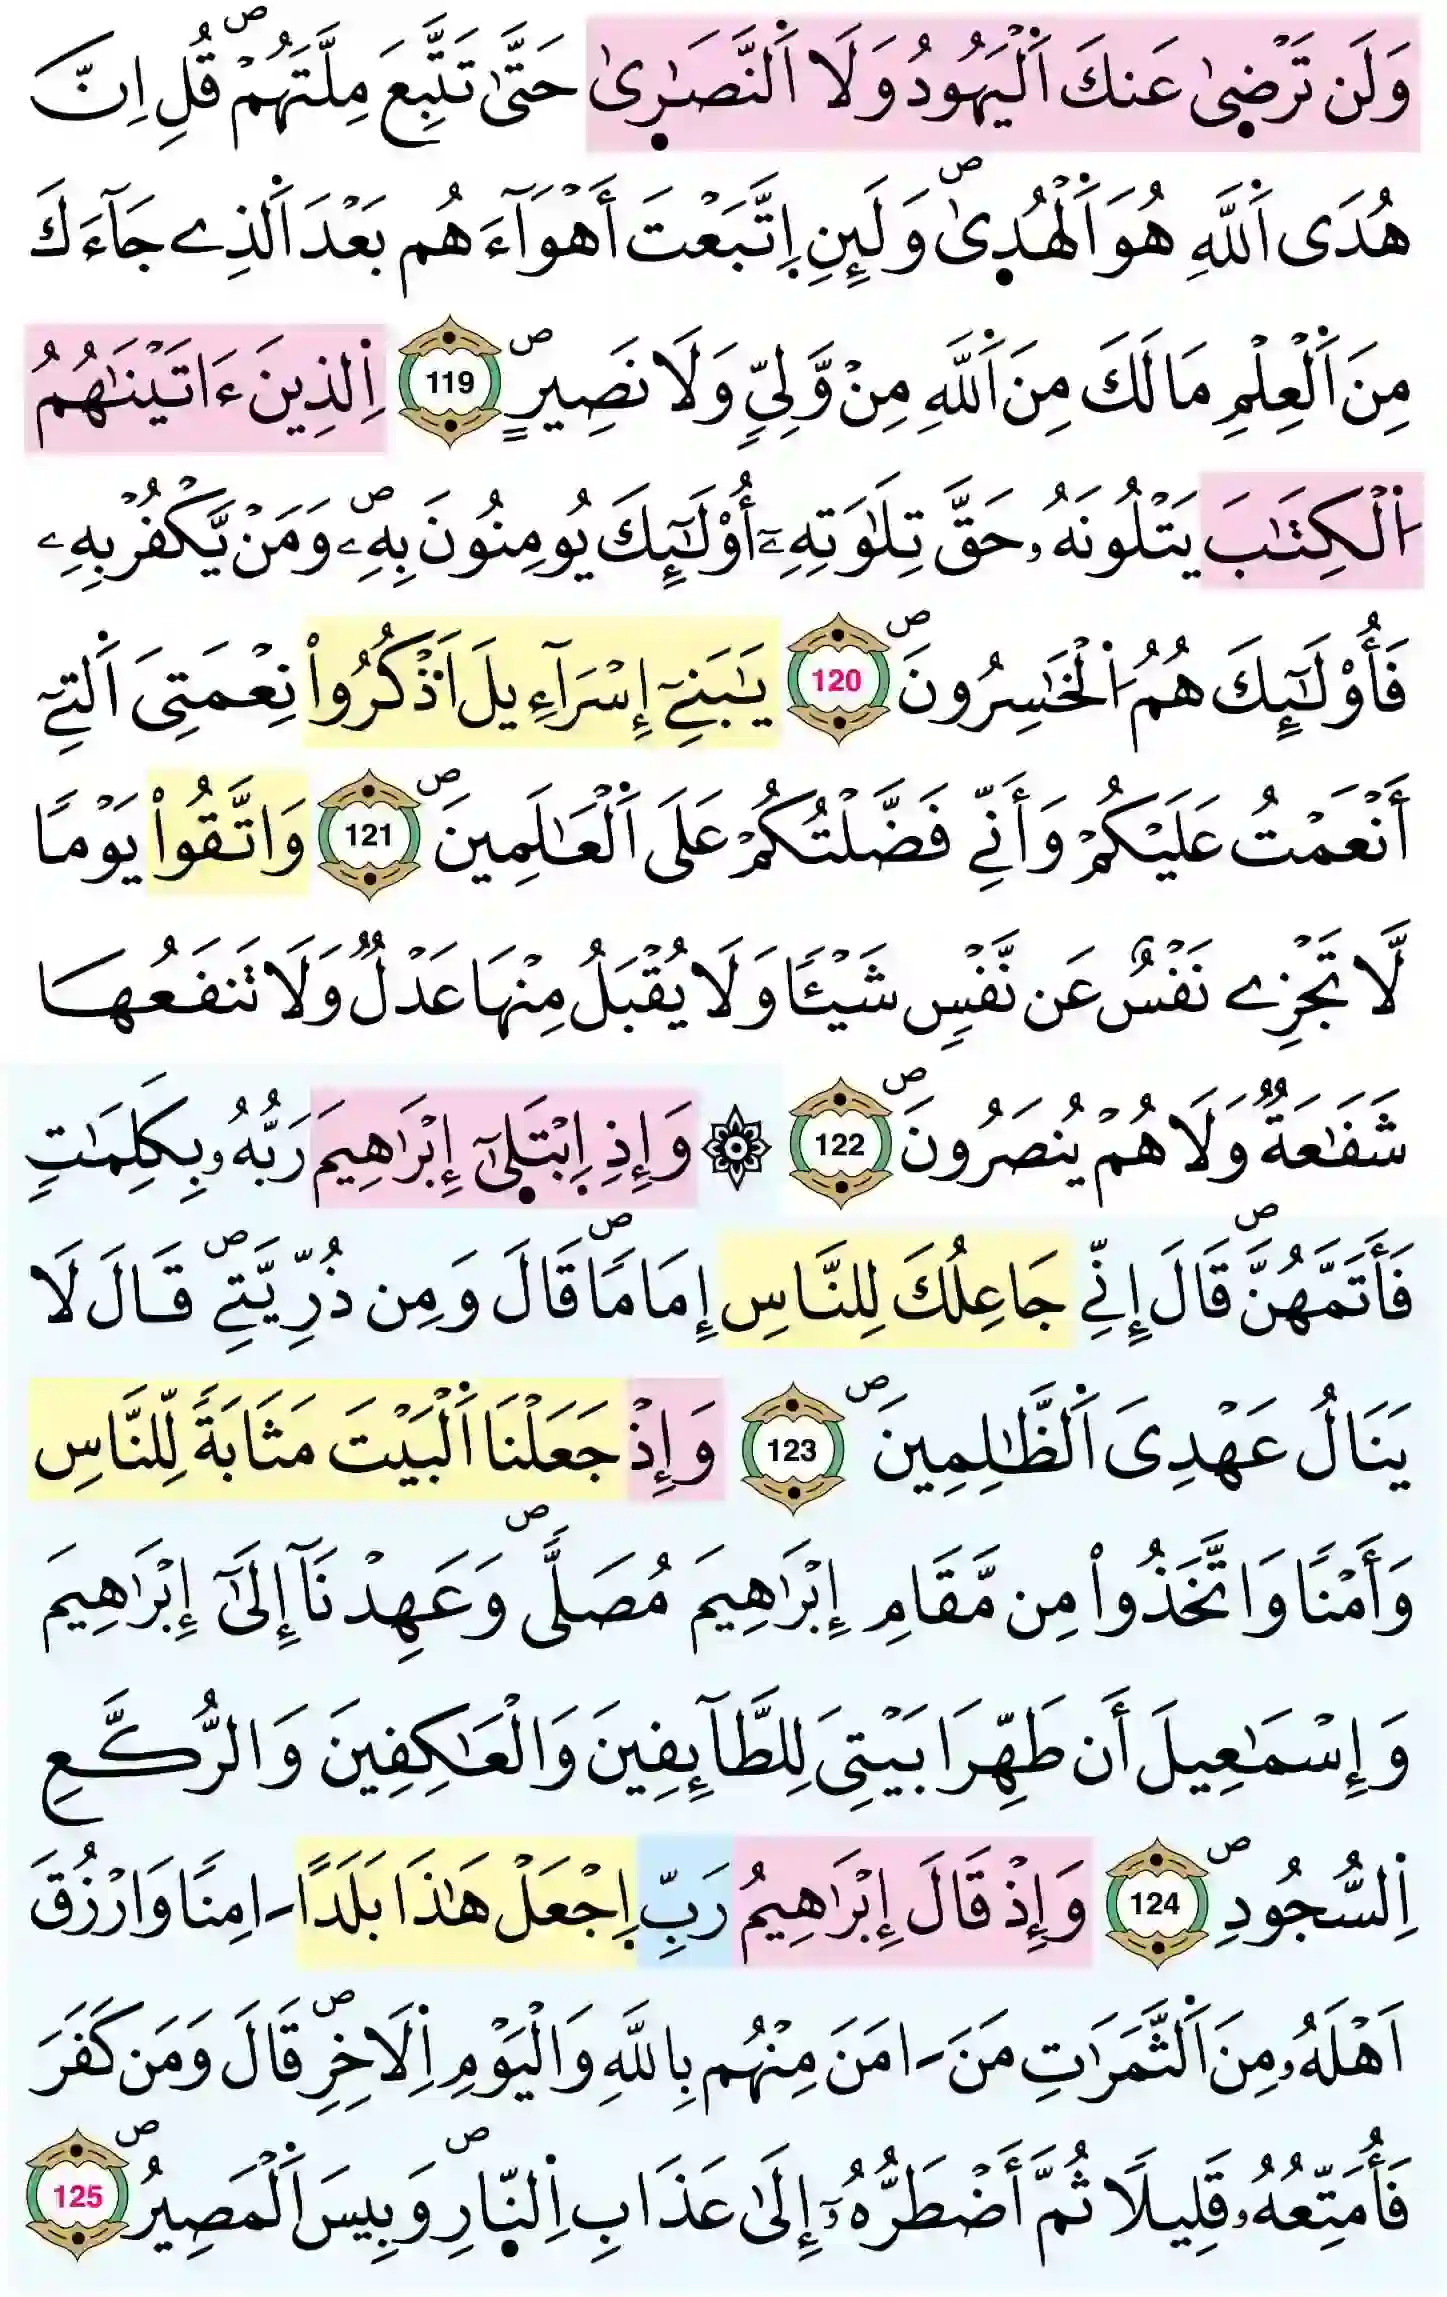 وَلَن تَرْضىٰ عَنكَ اَ۬لْيَهُودُ وَلَا اَ۬لنَّصَٰرىٰ حَتَّىٰ تَتَّبِعَ مِلَّتَهُمْۖ قُلِ اِنَّ
هُدَى اَ۬للَّهِ هُوَ اَ۬لْهُدىٰۖ وَلَئِنِ اِ۪تَّبَعْتَ أَهْوَآءَهُم بَعْدَ اَ۬لذِے جَآءَكَ
مِنَ اَ۬لْعِلْمِ مَا لَكَ مِنَ اَ۬للَّهِ مِنْ وَّلِيّٖ وَلَا نَصِيرٍۖ 119 اِ۬لذِينَ ءَاتَيْنَٰهُمُ
اُ۬لْكِتَٰبَ يَتْلُونَهُۥ حَقَّ تِلَٰوَتِهِۦٓ أُوْلَٰٓئِكَ يُومِنُونَ بِهِۦۖ وَمَنْ يَّكْفُرْ بِهِۦ
فَأُوْلَٰٓئِكَ هُمُ اُ۬لْخَٰسِرُونَۖ 120 يَٰبَنِےٓ إِسْرَآءِيلَ اَ۟ذْكُرُواْ نِعْمَتِىَ اَ۬لتِےٓ
أَنْعَمْتُ عَلَيْكُمْ وَأَنِّے فَضَّلْتُكُمْ عَلَى اَ۬لْعَٰلَمِينَۖ 121 وَاتَّقُواْ يَوْمًا
لَّا تَجْزِے نَفْسٌ عَن نَّفْسٖ شَيْـًٔا وَلَا يُقْبَلُ مِنْهَا عَدْلٌ وَلَا تَنفَعُهَا
شَفَٰعَةٌ وَلَا هُمْ يُنصَرُونَۖ 122 ۞ وَإِذِ اِ۪بْتَلىٰٓ إِبْرَٰهِيمَ رَبُّهُۥ بِكَلِمَٰتٖ
فَأَتَمَّهُنَّۖ قَالَ إِنِّے جَاعِلُكَ لِلنَّاسِ إِمَامًاۖ قَالَ وَمِن ذُرِّيَّتِےۖ قَالَ لَا
يَنَالُ عَهْدِىَ اَ۬لظَّٰلِمِينَۖ 123 وَإِذْ جَعَلْنَا اَ۬لْبَيْتَ مَثَابَةً لِّلنَّاسِ
وَأَمْنًا وَاتَّخَذُواْ مِن مَّقَامِ إِبْرَٰهِيمَ مُصَلًّىۖ وَعَهِدْنَآ إِلَىٰٓ إِبْرَٰهِيمَ
وَإِسْمَٰعِيلَ أَن طَهِّرَا بَيْتِىَ لِلطَّآئِفِينَ وَالْعَٰكِفِينَ وَالرُّكَّعِ
اِ۬لسُّجُودِۖ 124 وَإِذْ قَالَ إِبْرَٰهِيمُ رَبِّ اِ۪جْعَلْ هَٰذَا بَلَدًا اٰمِنًا وَارْزُقَ
اَهْلَهُۥ مِنَ اَ۬لثَّمَرَٰتِ مَنَ اٰمَنَ مِنْهُم بِاللَّهِ وَالْيَوْمِ اِ۬لَاخِرِۖ قَالَ وَمَن كَفَرَ
فَأُمَتِّعُهُۥ قَلِيلًا ثُمَّ أَضْطَرُّهُۥٓ إِلَىٰ عَذَابِ اِ۬لنّارِۖ وَبِيسَ اَ۬لْمَصِيرُۖ 125